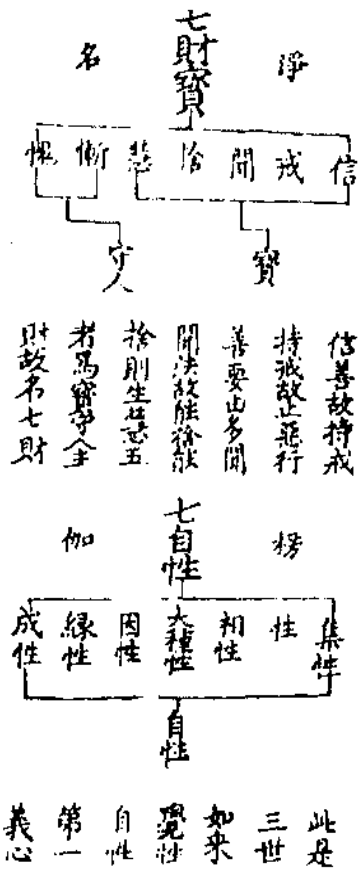 淨
七財寶
名
信
戒
聞
捨
慧
慚
愧
寶
守人
信善故持戒
持戒故止惡行
善要由多聞
聞法故能捨能
捨則生慧五
者為寶守人
財故名七財
楞
七自性
伽
集性
性
相性
大種性
因性
緣性
成性
自性
此是
三世
如來
覺性
自性
第一
義心